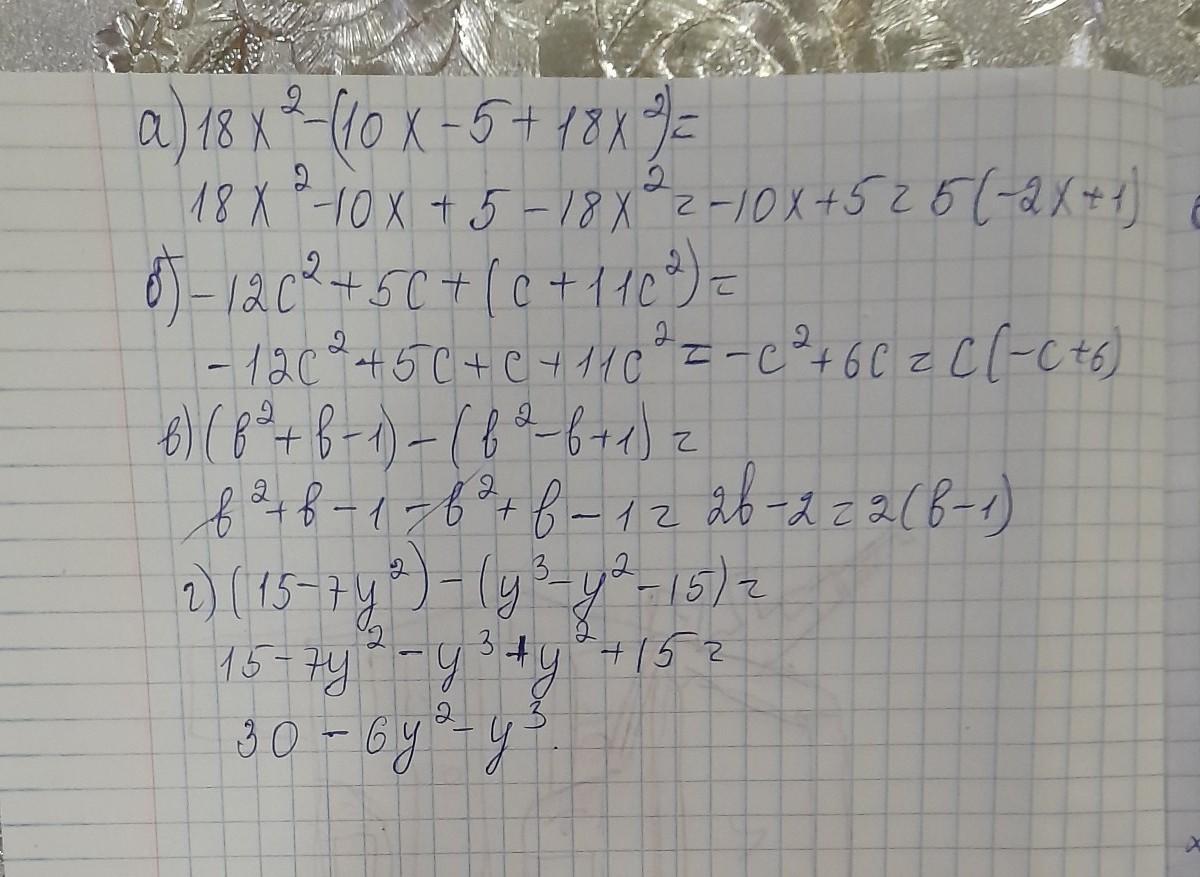 а) 18x² - (10x - 5 + 18x²) =
18x² - 10x + 5 - 18x² = -10x + 5 = 5(-2x + 1)
б) -12c² + 5c + (c + 11c²) =
-12c² + 5c + c + 11c² = -c² + 6c = c(-c + 6)
в) (b² + b - 1) - (b² - b + 1) =
b² + b - 1 - b² + b - 1 = 2b - 2 = 2(b - 1)
г) (15 - 7y²) - (y³ - y² - 15) =
15 - 7y² - y³ + y² + 15 =
30 - 6y² - y³.